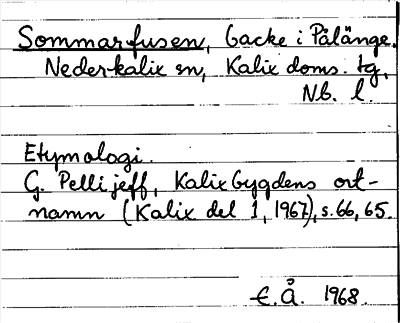 Sommarfusen, backe i Pålänge,
Nederkalix sn, Kalix doms. tg,
Nb. l.
Etymologi.
G. Pellijeff, Kalixbygdens ort-
namn (Kalix del 1, 1967), s. 66, 65.
E. Å. 1968.